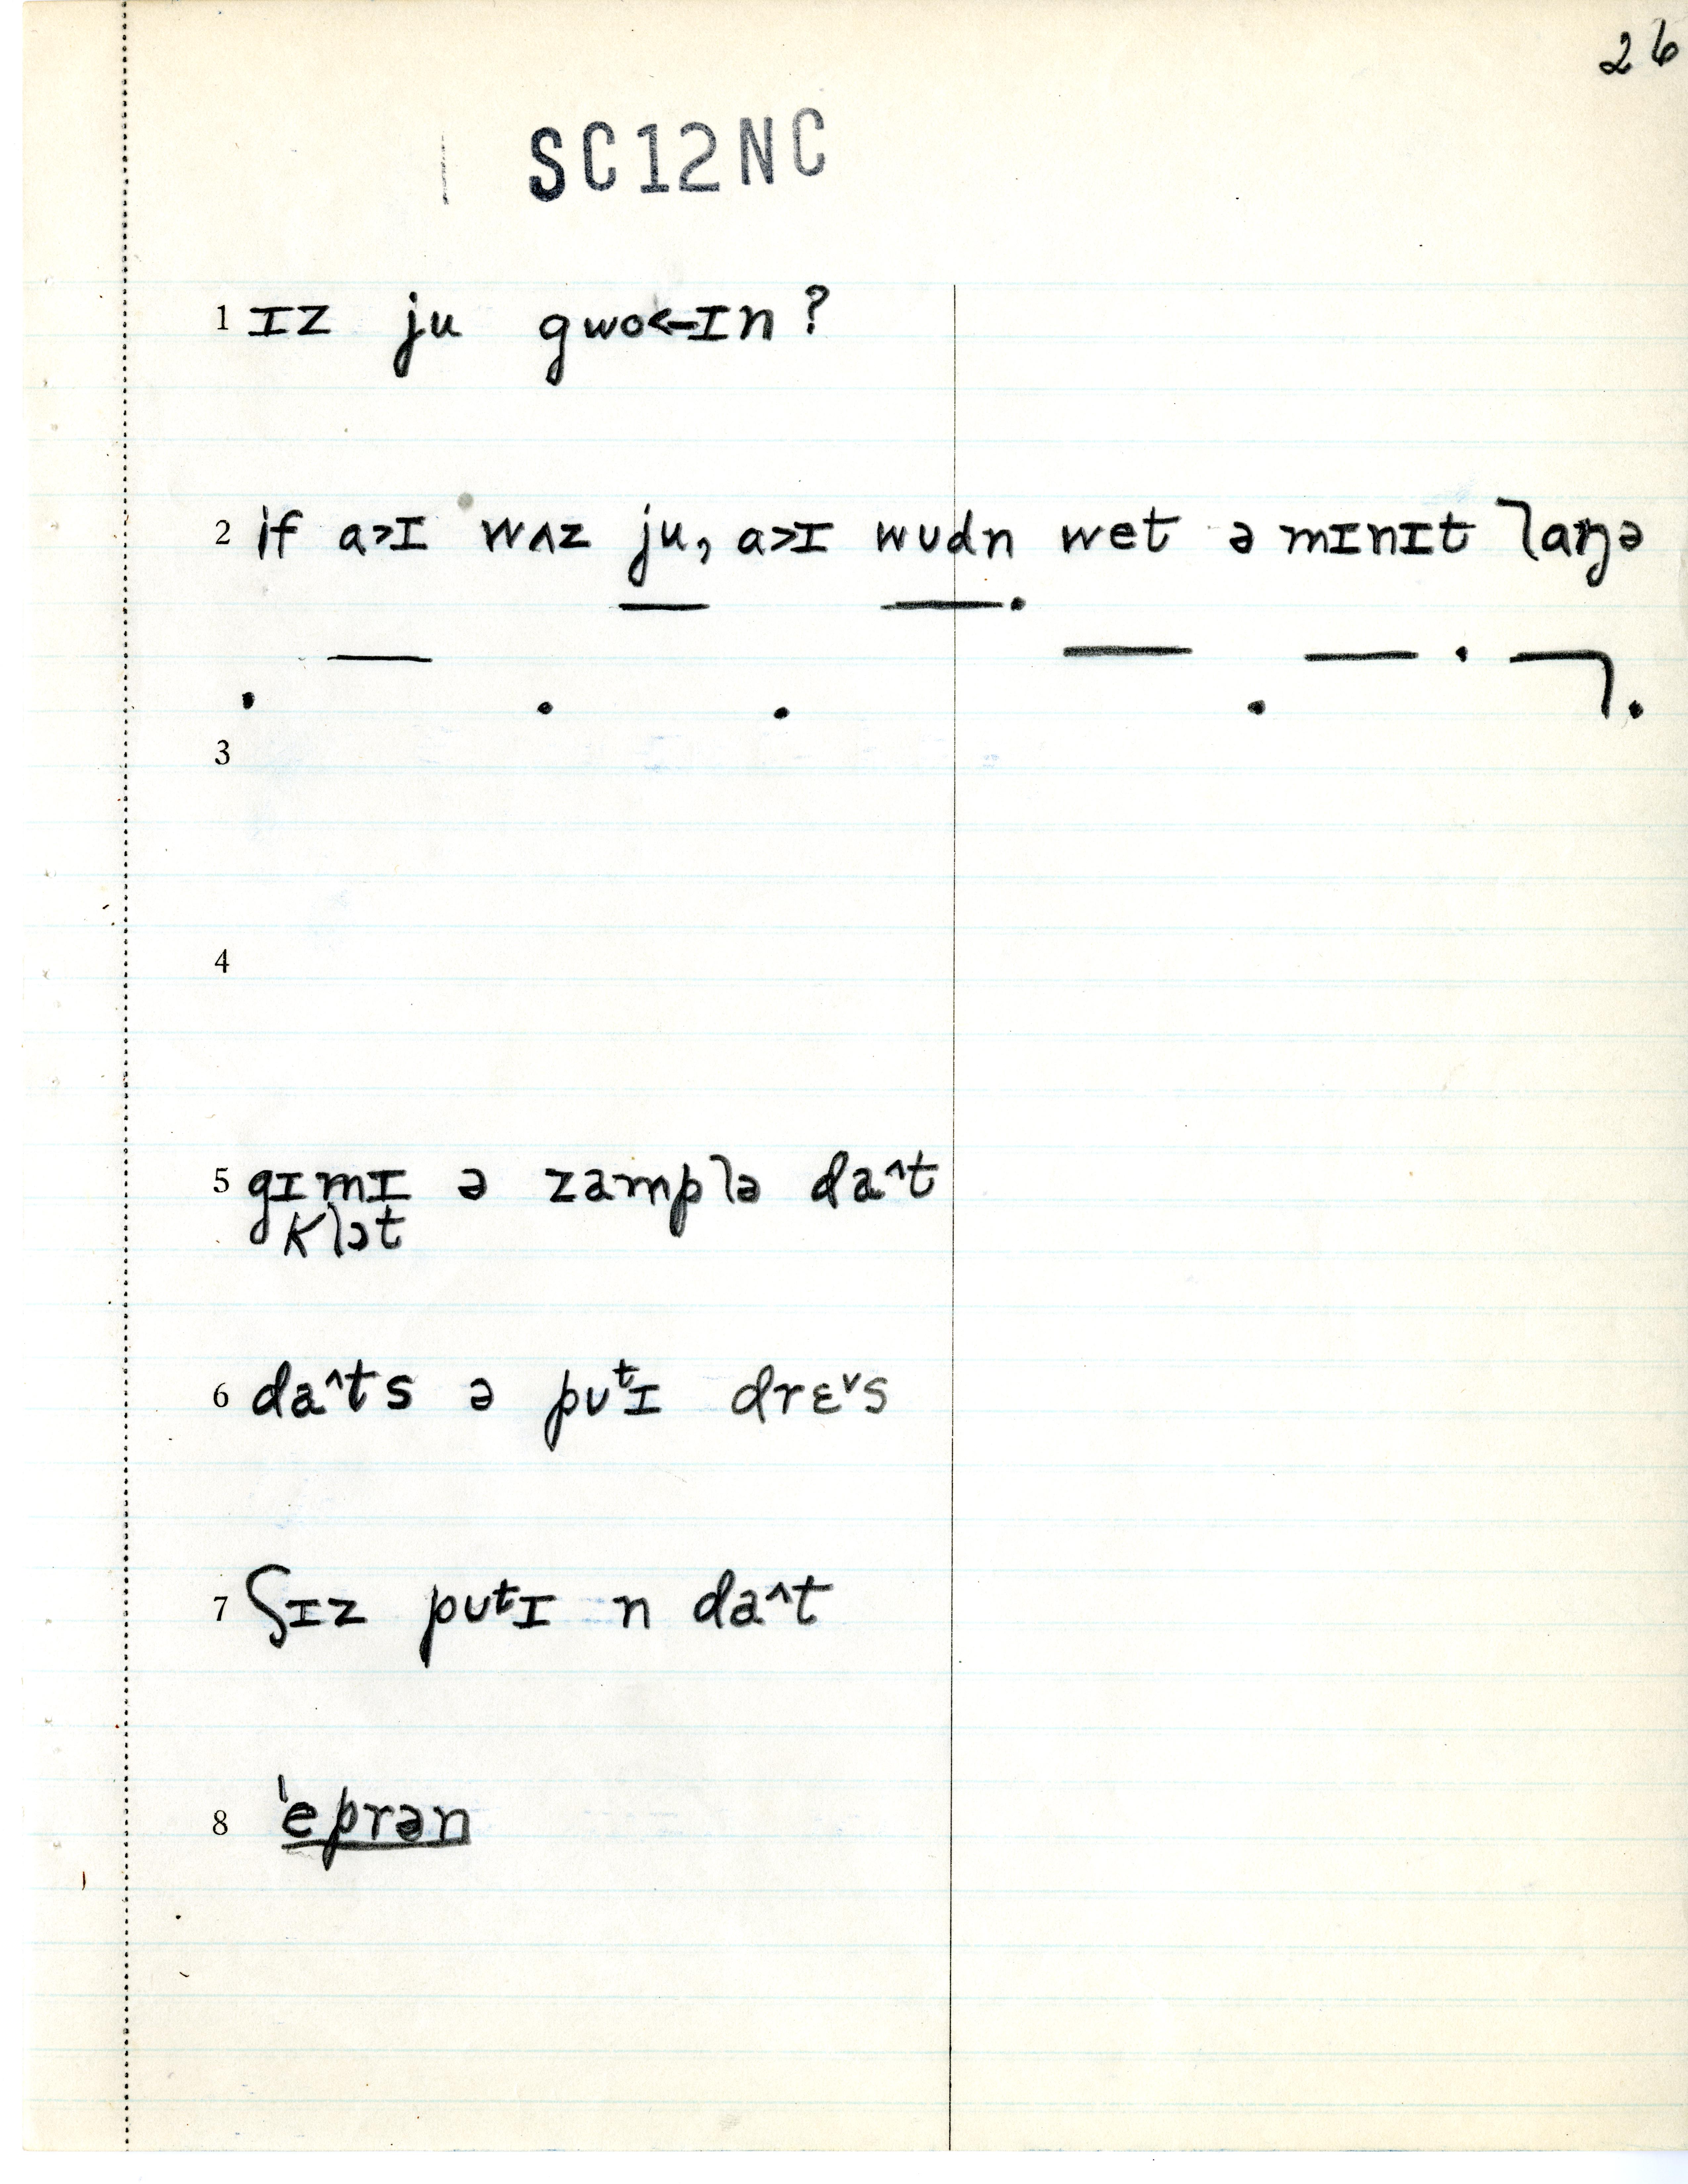 26
SC12NC
1 ɪz ju gwo<-ɪn?
2 if a>ɪ wʌz ju, a>ɪ wudn wet ə mɪnɪt laŋə
3
4
5 gɪmɪ ə zamplə da^t
klɔt
6 da^ts ə puᵗɪ drɛᵛs
7 ʃɪz puᵗɪ n da^t
8 ˈeprən